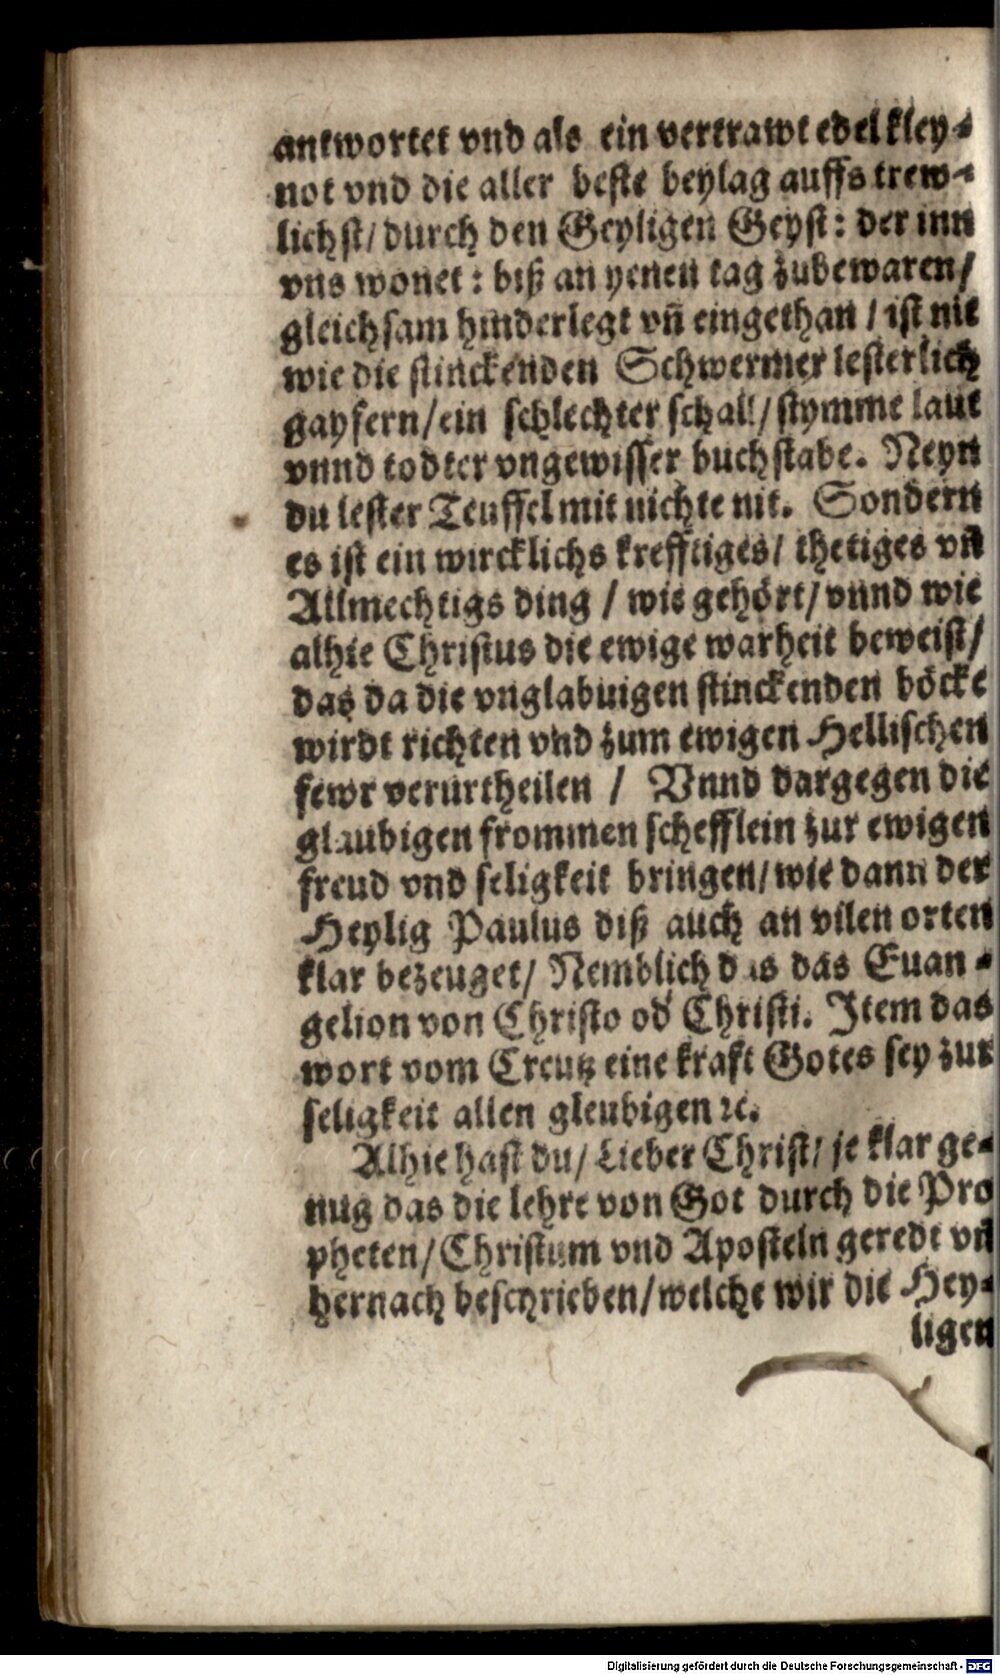 antwortet vnd als ein vertrawt edel kley-
not vnd die aller beste beylag auffs trew-
lichst/ durch den Geyligen Geyst: der inn
vns wonet: biß an yenen tag zubewaren/
gleichsam hinderlegt vñ eingethan / ist nit
wie die stinckenden Schwermer lesterlich
gayfern/ein schlechter schall/stymme laut
vnnd todter vngewisser buchstabe. Neyn
du lester Teuffel mit nichte nit. Sondern
es ist ein wircklichs krefftiges/ thetiges vñ
Allmechtigs ding / wie gehört/ vnnd wie
alhie Christus die ewige warheit beweist/
das da die vnglabuigen stinckenden böcke
wirdt richten vnd zum ewigen Hellischen
fewr verurtheilen / Vnnd dargegen die
glaubigen frommen schefflein zur ewigen
freud vnd seligkeit bringen/wie dann der
Heylig Paulus diß auch an vilen orten
klar bezeuget/ Nemblich das das Euan-
gelion von Christo od' Christi. Item das
wort vom Creutz eine kraft Gotes sey zur
seligkeit allen gleubigen ꝛc.
Alhie hast du/ Lieber Christ/ je klar ge-
nug das die lehre von Got durch die Pro
pheten/Christum vnd Aposteln geredt vñ
hernach beschrieben/welche wir die Hey-
ligen
Digitalisierung gefördert durch die Deutsche Forschungsgemeinschaft - DFG